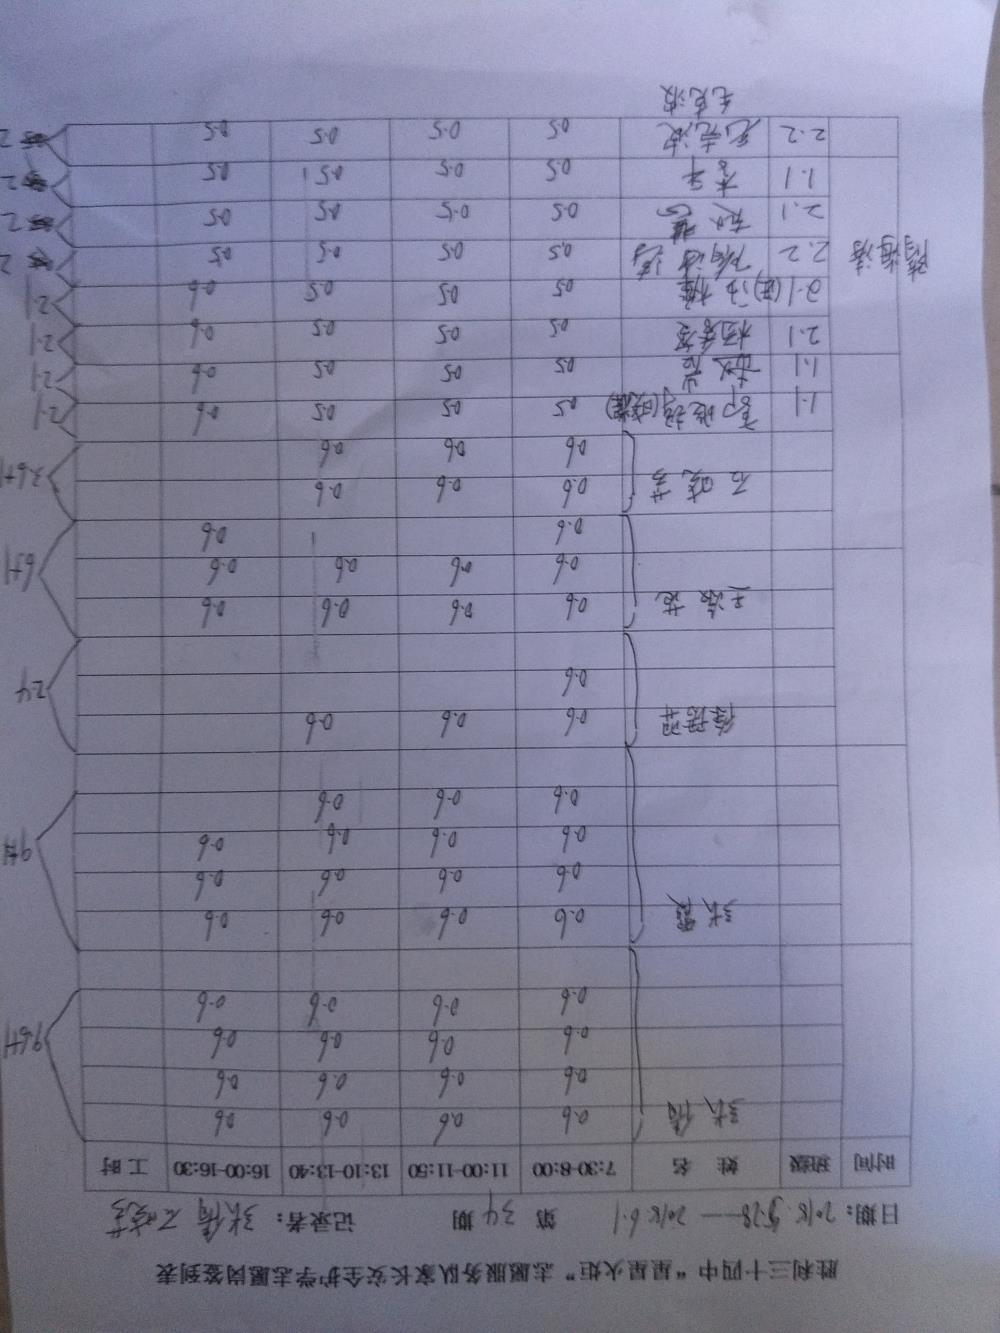 胜利三十四中“星星火炬”志愿服务队家长安全护学志愿岗签到表
日期：2018.5.28——2018.6.1 第 34 期 记录者：张倩 石晓芳
时间 班级 姓 名 7:30-8:00 11:00-11:50 13:10-13:40 16:00-16:30 工时
张倩 0.6 0.6 0.6 0.6
0.6 0.6 0.6 0.6
0.6 0.6 0.6 0.6 9.6+1
0.6 0.6 0.6 0.6
张霞 0.6 0.6 0.6 0.6
0.6 0.6 0.6 0.6
0.6 0.6 0.6 0.6 9+1
0.6 0.6 0.6
0.6 0.6 0.6
0.6 2.4
0.6 0.6 0.6 0.6
0.6 0.6 0.6 0.6 6+1
0.6 0.6
石晓芳 0.6 0.6 0.6 3.6+1
0.6 0.6 0.6
1.1 0.5 0.5 0.5 0.6 2.1
1.1 0.5 0.5 0.5 0.6 2.1
2.1 0.5 0.5 0.5 0.6 2.1
2.1 0.5 0.5 0.5 0.6 2.1
隋海清 2.2 0.5 0.5 0.5 0.5 2
2.1 0.5 0.5 0.5 0.5 2
1.1 李军 0.5 0.5 0.5 0.5 2
2.2 0.5 0.5 0.5 0.5 2
毛克波